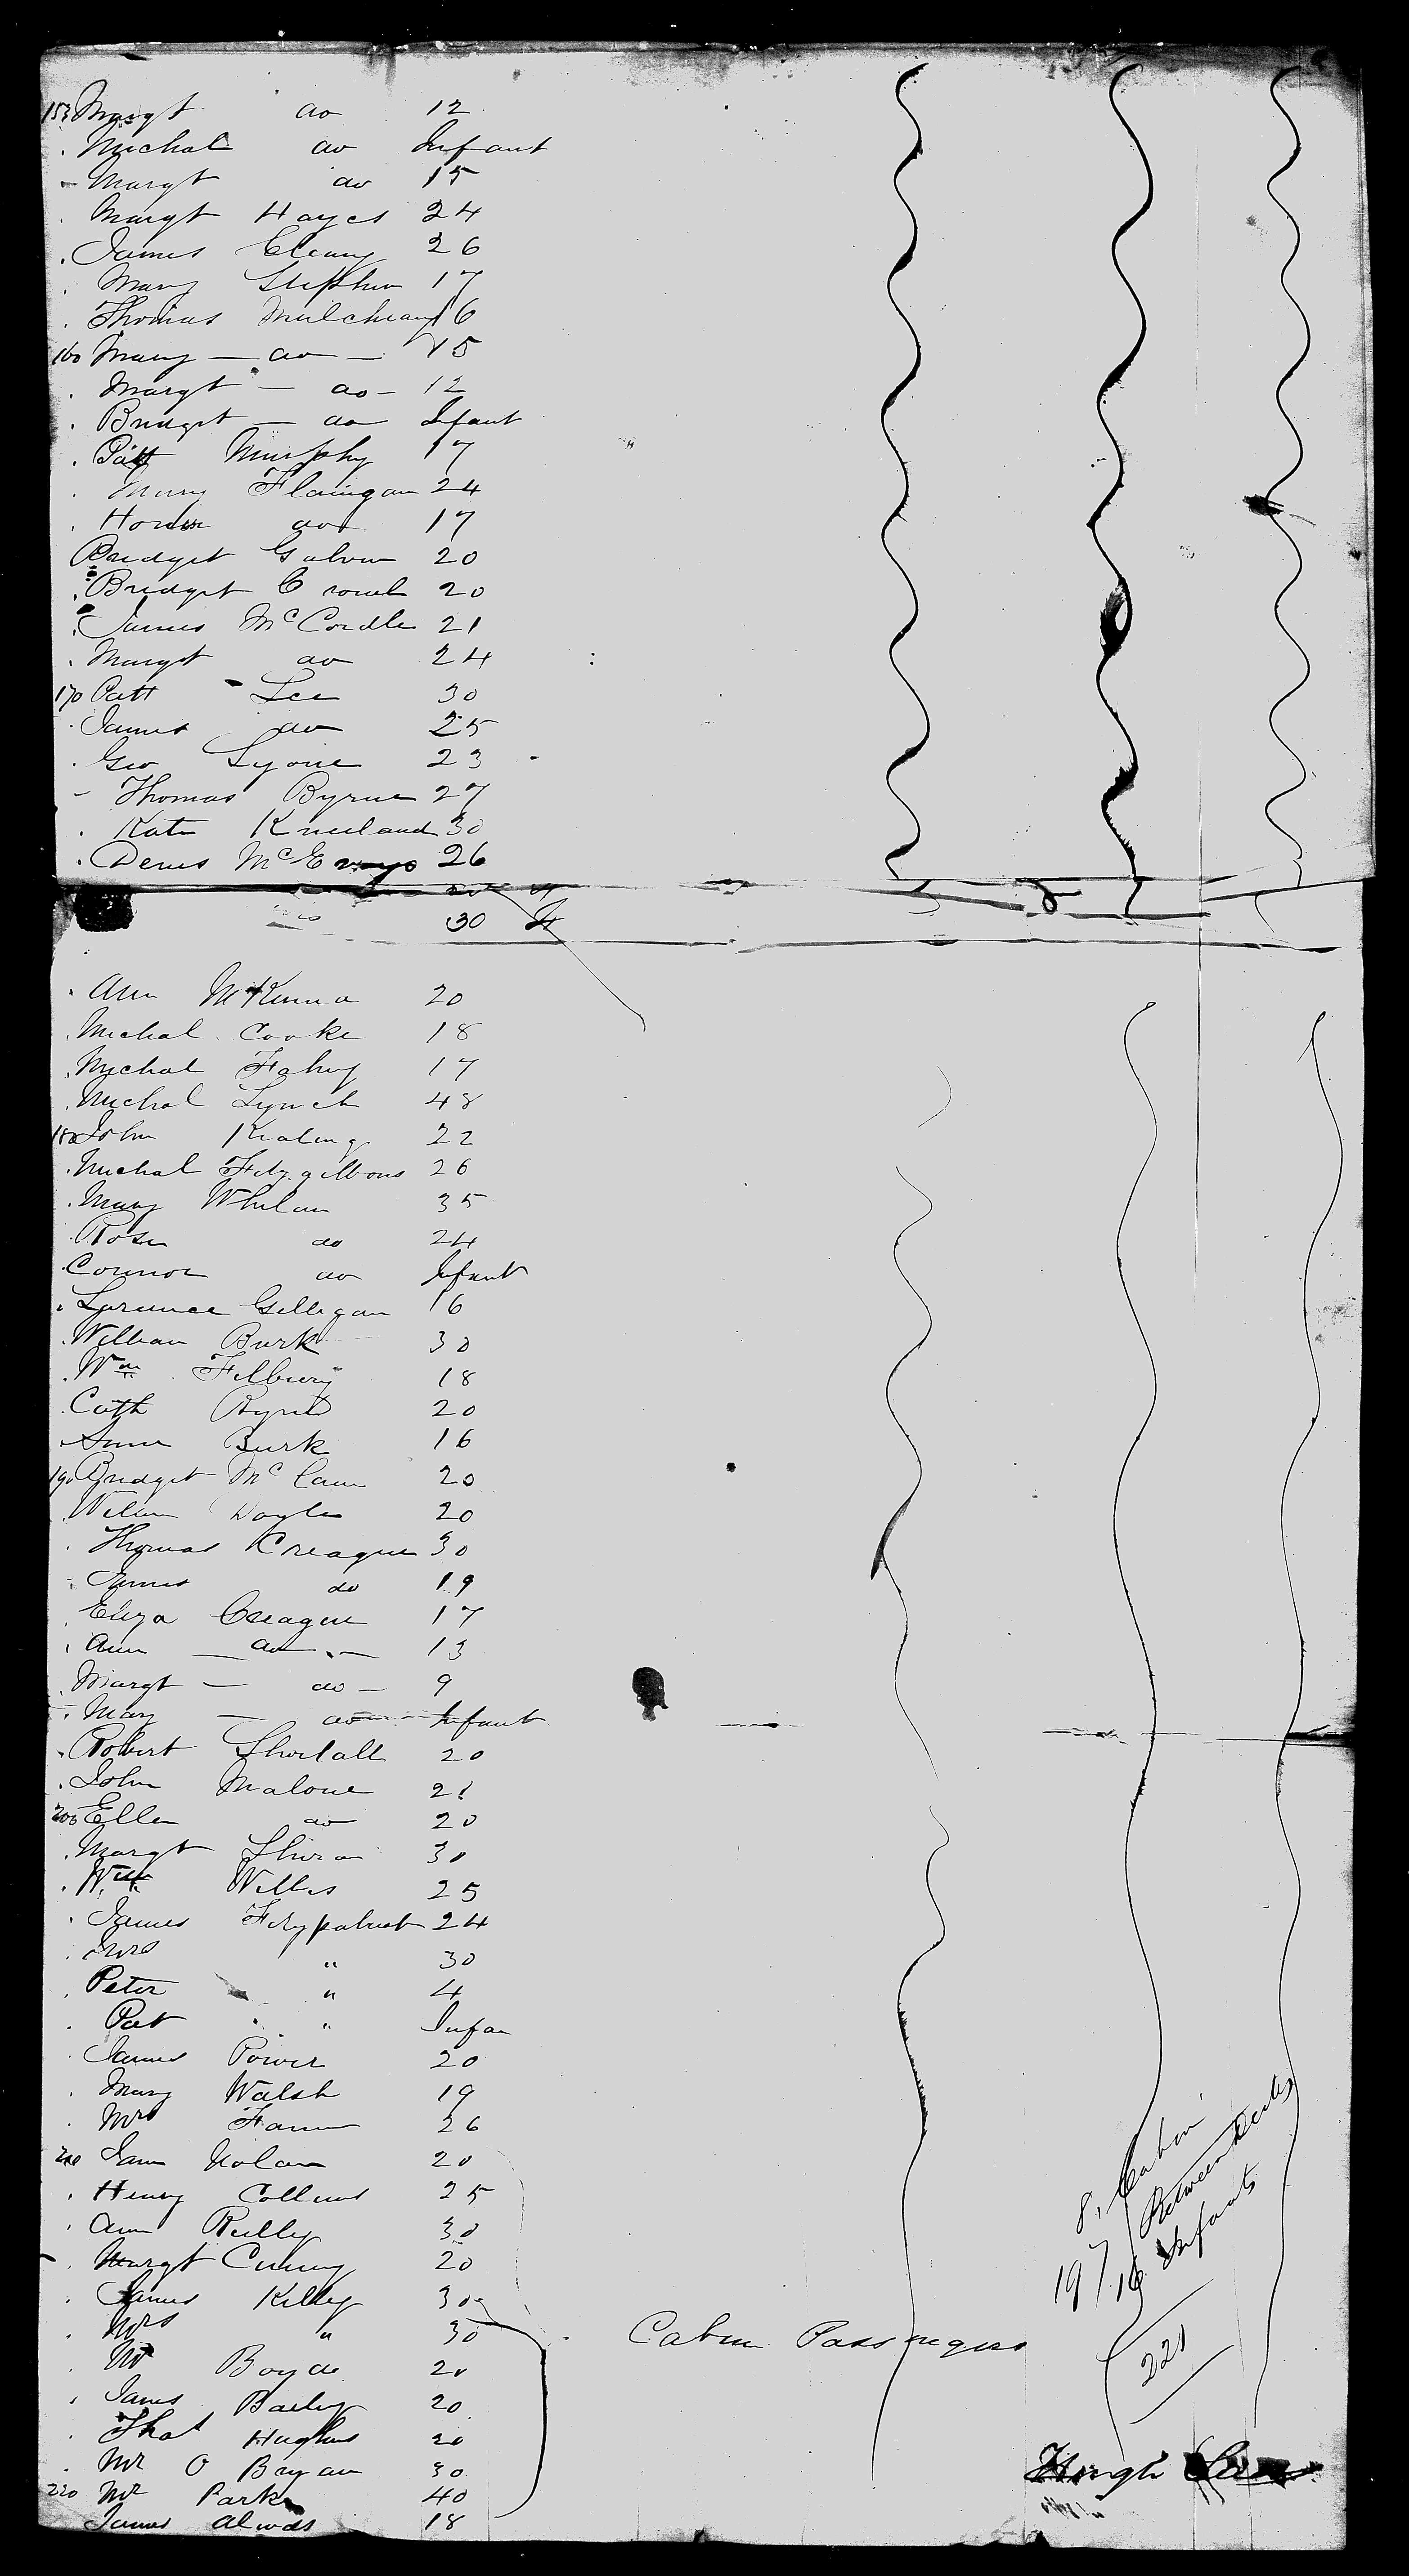 153 Margt do 12
Michal do Infant
Margt do 15
Margt Hayes 24
James Cleary 26
Mary Stephen 17
Thomas 16
160 Mary — do — 15
Margt — do — 12
Bridget — do Infant
Patt Murphy 17
Mary Flanigan 24
do 17
Bridget Galvin 20
Bridget 20
James McCordle 21
Margt do 24
170 Patt Lee 30
James do 25
Geo Lyone 23
Thomas Byrne 27
Kate Kneeland 30
Denis McEvoy 26
30
Ann McKenna 20
Michal Cooke 18
Michal Fahy 17
Michal Lynch 48
180 John Kealing 22
Michal Fitzgibbons 26
Mary Whelan 35
Rose do 24
Connor do Infant
Larance Gilligan 16
William Burk 30
Wm Filbury 18
Cath Byrne 20
Anne Burk 16
190 Bridget McCann 20
William Doyle 20
Thomas Creague 30
James do 19
Eliza Creague 17
Ann — do — 13
Margt — do — 9
Mary — do — Infant
Robert Shortall 20
John Malone 21
200 Ellen do 20
Margt 30
Willis 25
James Fitzpatrick 24
Mrs " 30
Peter " 4
Pat " Infan
James Power 20
Mary Walsh 19
Mrs 26
210 Nolan 20
Henry Collins 25
Ann Reilly 30
Margt 20
James Kelley 30
Mrs " 30
Cabin Passengers
Mr Boyde 20
James Bailey 20
Thos Hughes 20
Mr O Bryan 30
220 Mr Parks 40
James 18
8, Cabin
197 Between Decks
16 Infants
221
Hugh